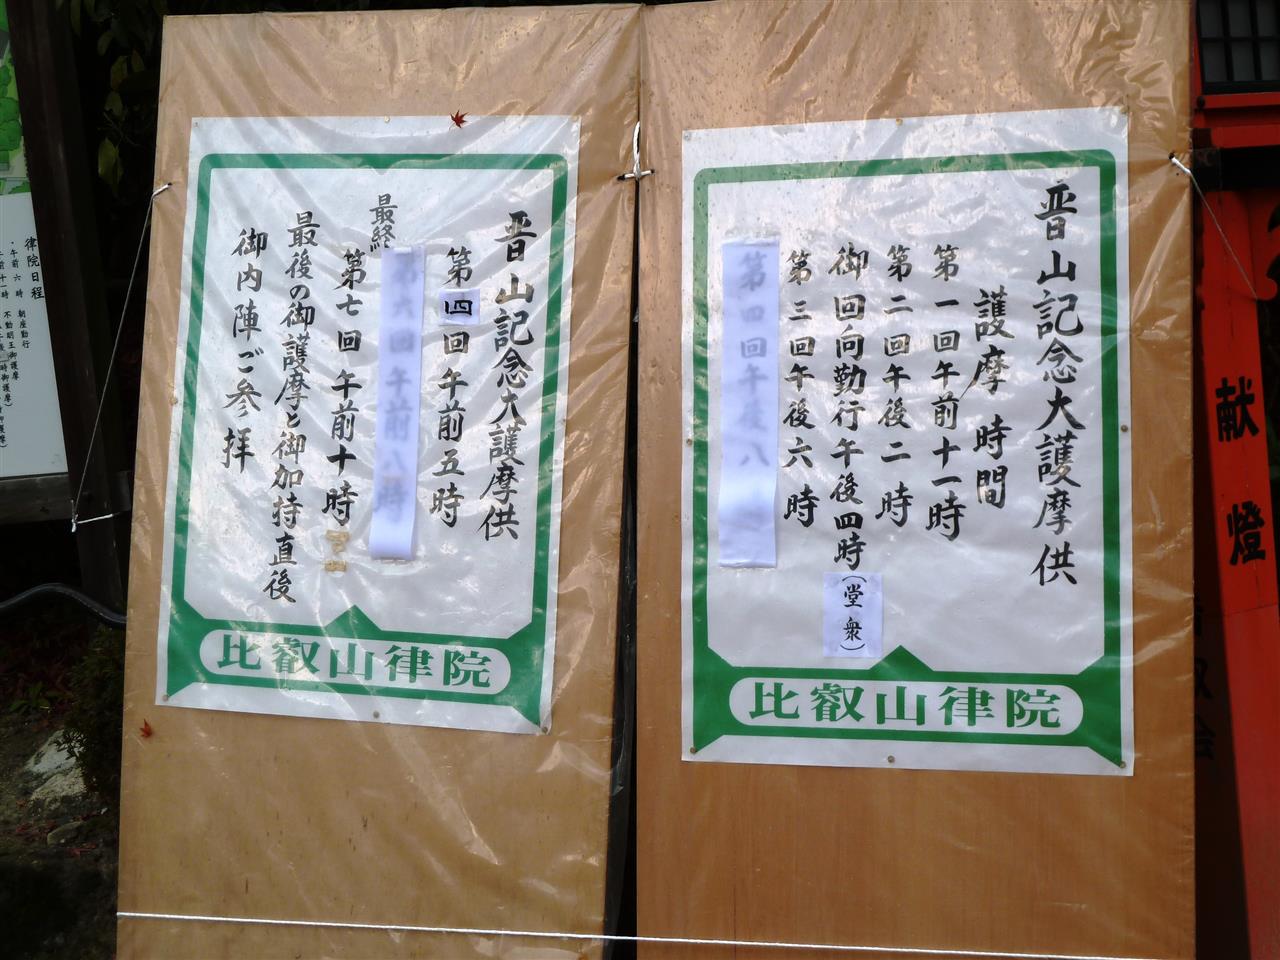 晋山記念大護摩供
護摩 時間
第一回午前十一時
第二回午後二時
御回向勤行午後四時(堂衆)
第三回午後六時
第四回午後八
比叡山律院
晋山記念大護摩供
第四回午前五時
第六回午前八時
最終
第七回午前十時
最後の御護摩と御加持直後
御内陣ご参拝
比叡山律院
律院日程
献燈